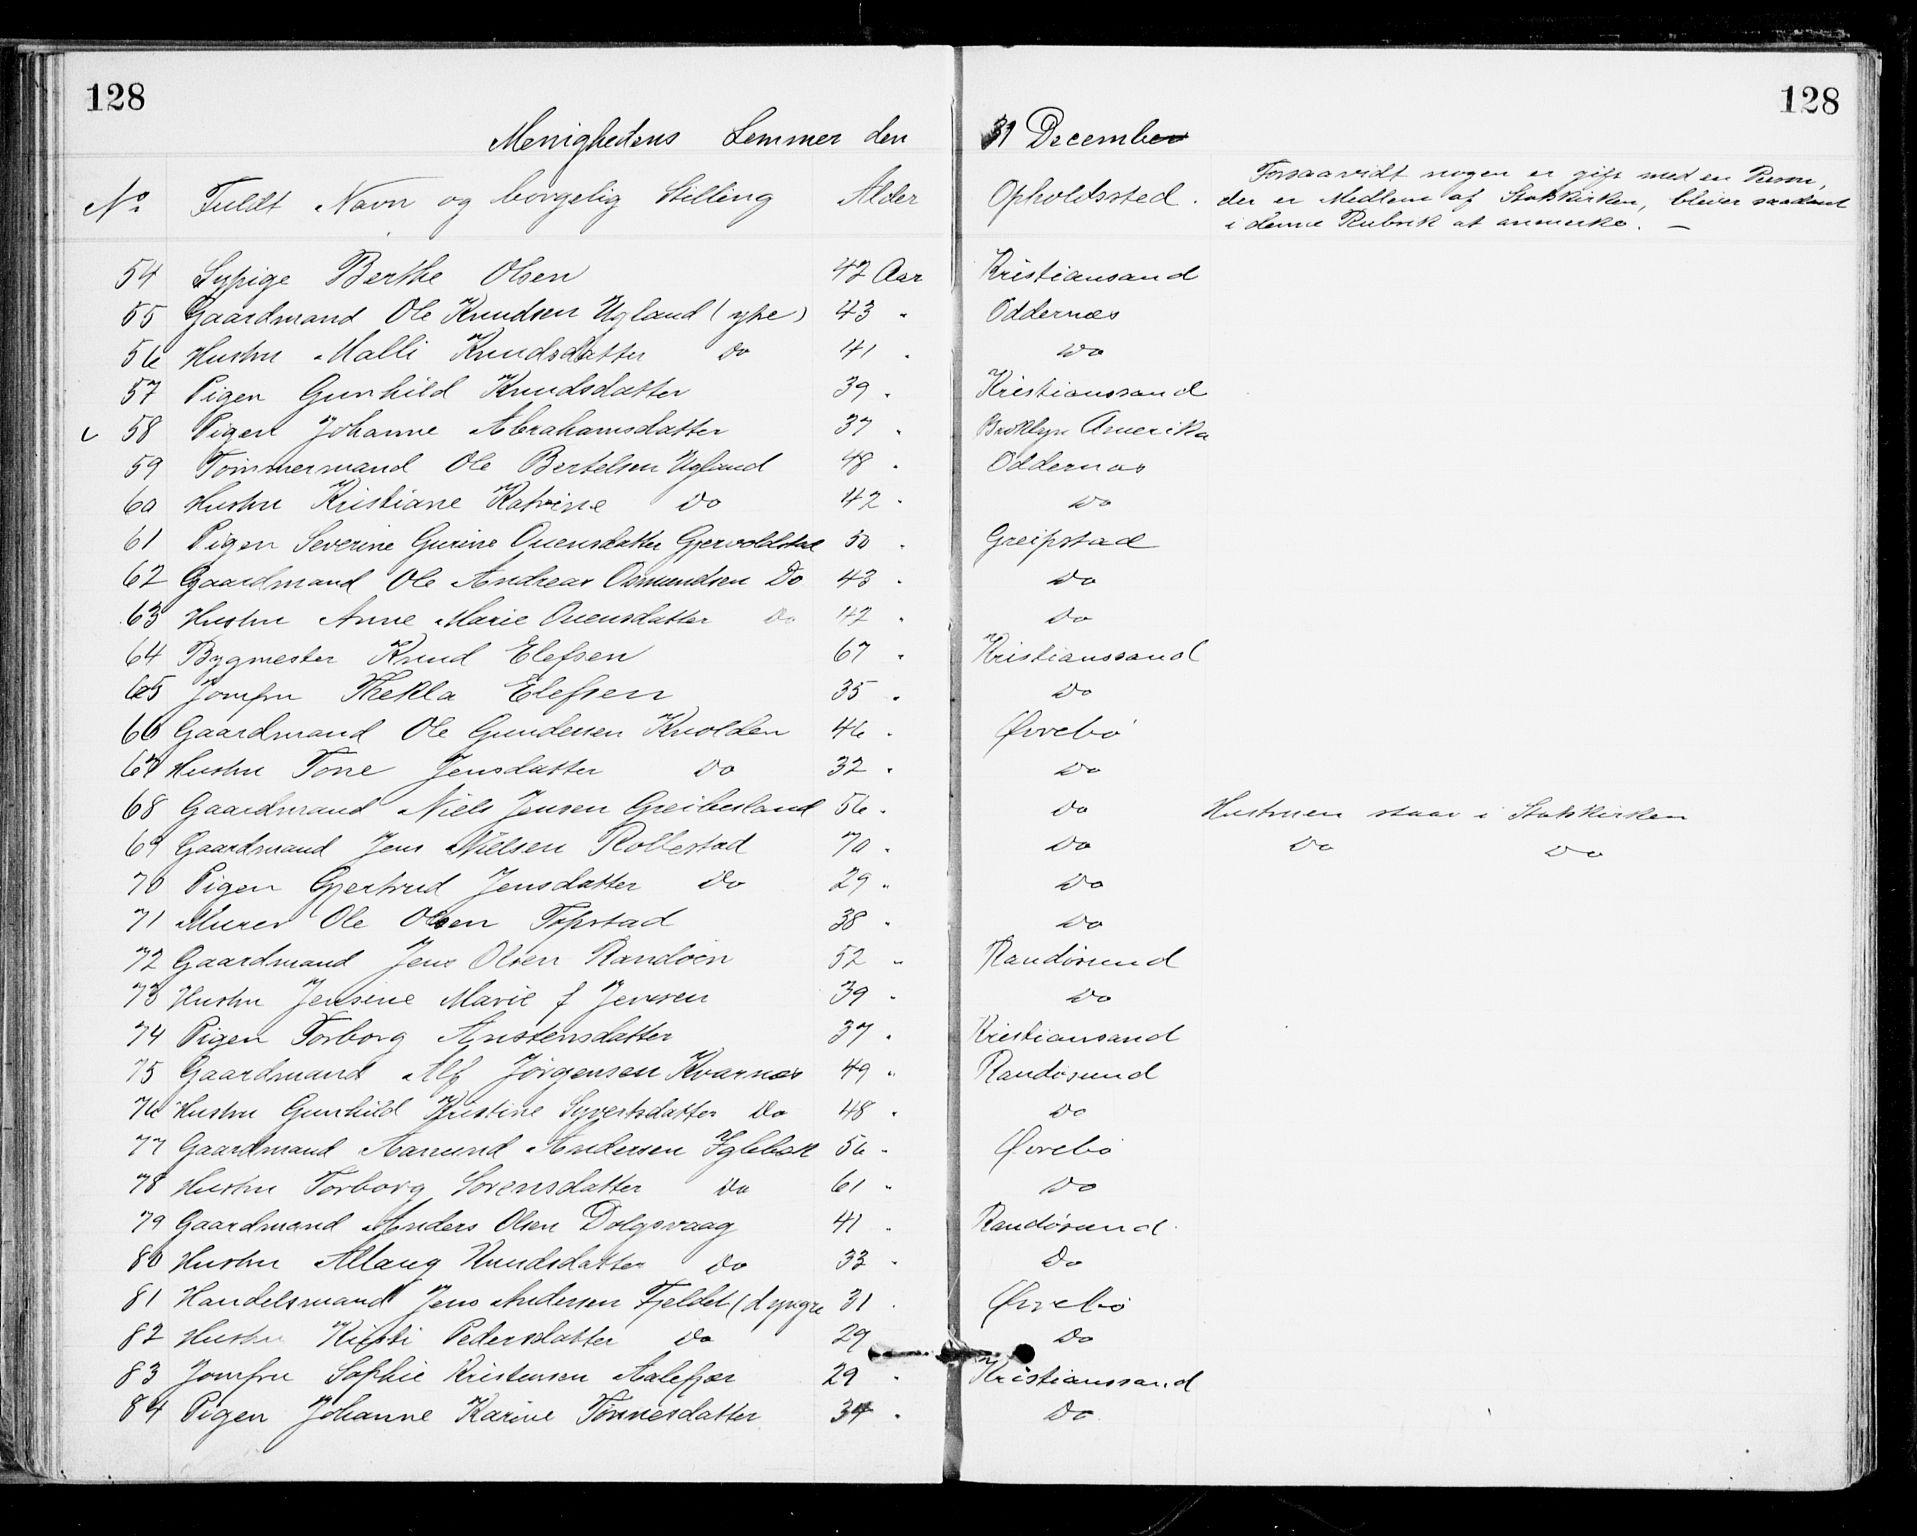 128 128
Menighedens Lemmer den 31 December
No. Fuldt Navn og borgelig Stilling Alder Opholdssted. Forsaavidt nogen er gift med en Person,
der er Medlem af Statskirken, bliver saadant
i denne Rubrik at anmerke. —
54 Sypige Berthe Olsen 42 Aar Kristiansand
55 Gaardmand Ole Knudsen Ugland ( ) 43 " Oddernæs
56 Hustru Malli Knudsdatter Do 41 " Do
57 Pigen Gunhild Knudsdatter 39 " Kristianssand
58 Pigen Johanne Abrahamsdatter 37 " Broklyn Amerika
59 Tømmermand Ole Bertelsen Ugland 48 " Oddernæs
60 Hustru Kristiane Katrine Do 42 " Do
61 Pigen Severine Gurine Ouensdatter Gjervoldstad 50 " Greipstad
62 Gaardmand Ole Andreas Osmundsen Do 43 " Do
63 Hustru Anne Marie Ouensdatter Do 42 " Do
64 Bygmester Knud Elefsen 67 " Kristianssand
65 Jomfru Thekla Elefsen 35 " Do
66 Gaardmand Ole Gundersen Knolden 46 " Øvrebø
67 Hustru Tone Jensdatter Do 32 " Do
68 Gaardmand Niels Jensen Greibesland 56 " Do Hustruen staar i Statskirken
69 Gaardmand Jens Nielsen Rollestad 70 " Do Do Do
70 Pigen Gjertrud Jensdatter Do 29 " Do
71 Murer Ole Olsen Topstad 38 " Do
72 Gaardmand Jens Olsen Randøen 52 " Randøsund
73 Hustru Jensine Marie f Jensen 39 " Do
74 Pigen Torborg Anstensdatter 37 " Kristiansand
75 Gaardmand Alf Jørgensen Kvarnes 49 " Randøsund
76 Hustru Gunhild Kristine Syvertsdatter Do 48 " Do
77 Gaardmand Aamund Andersen Iglebæk 56 " Øvrebø
78 Hustru Torborg Sørensdatter Do 61 " Do
79 Gaardmand Anders Olsen Dolgsvaag 41 " Randøsund
80 Hustru Allaug Knudsdatter Do 33 " Do
81 Handelsmand Jens Andersen Fjeldet (d yngre 31 " Øvrebø
82 Hustru Kirsti Pedersdatter Do 29 Do
83 Jomfru Sophie Kristensen Aalefjær 29 " Kristianssand
84 Pigen Johanne Karine Tønnesdatter 34 " Do